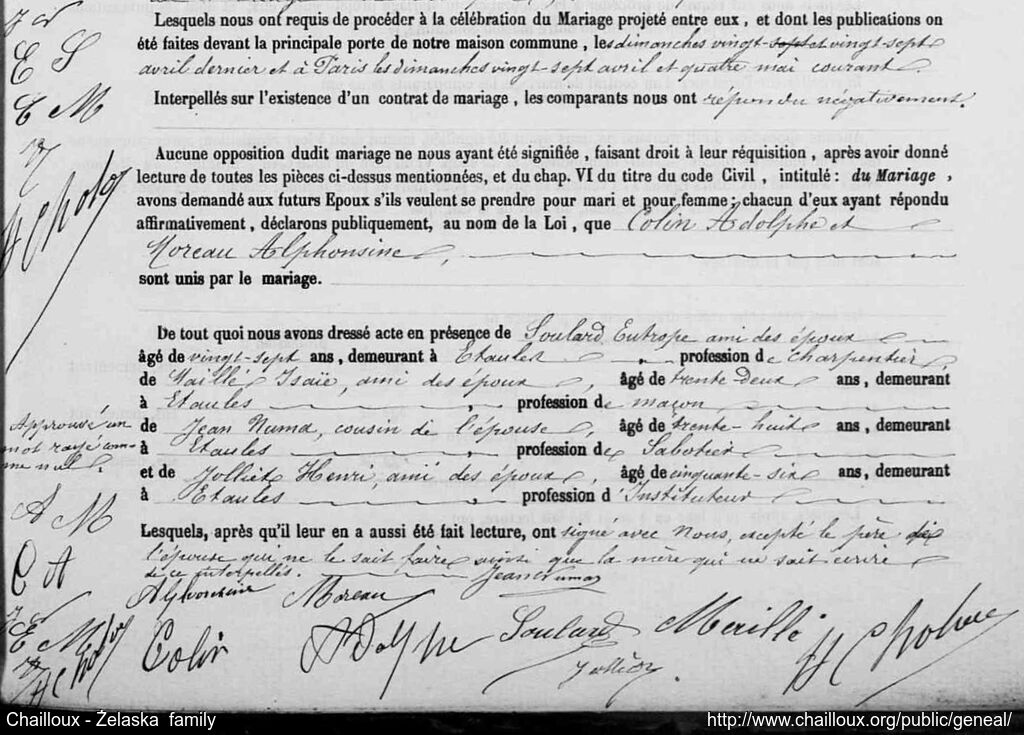 Lesquels nous ont requis de procéder à la célébration du Mariage projeté entre eux, et dont les publications on
été faites devant la principale porte de notre maison commune, les dimanches vingt-sept et vingt-sept
avril dernier et à Paris les dimanches vingt-sept avril et quatre mai courant.
Interpellés sur l'existence d'un contrat de mariage, les comparants nous ont répondu négativement.
Aucune opposition dudit mariage ne nous ayant été signifiée, faisant droit à leur réquisition, après avoir donné
lecture de toutes les pièces ci-dessus mentionnées, et du chap. VI du titre du code Civil, intitulé: du Mariage,
avons demandé aux futurs Epoux s'ils veulent se prendre pour mari et pour femme; chacun d'eux ayant répondu
affirmativement, déclarons publiquement, au nom de la Loi, que Colin Adolphe et
Moreau Alphonsine,
sont unis par le mariage.
De tout quoi nous avons dressé acte en présence de Soulard Eutrope ami des époux
âgé de vingt-sept ans, demeurant à Etaules, profession de charpentier,
de Maillé Isaïe, ami des époux, âgé de trente-deux ans, demeurant
à Etaules, profession de maçon,
de Jean Numa, cousin de l'épouse, âgé de trente-huit ans, demeurant
à Etaules, profession de Sabotier
et de Jolliet Henri, ami des époux, âgé de cinquante-six ans, demeurant
à Etaules, profession d'Instituteur
Lesquels, après qu'il leur en a aussi été fait lecture, ont signé avec Nous, excepté le père de
l'épouse qui ne le sait faire ainsi que la mère qui ne sait écrire
de ce interpellés. Jean Numa
Alphonsine Moreau
Colin Adolphe Soulard Meillé
Approuvé un
mot rayé com-
me nul.
E S
E M
A M
C A
E M
Chailloux - Żelaska family
http://www.chailloux.org/public/geneal/